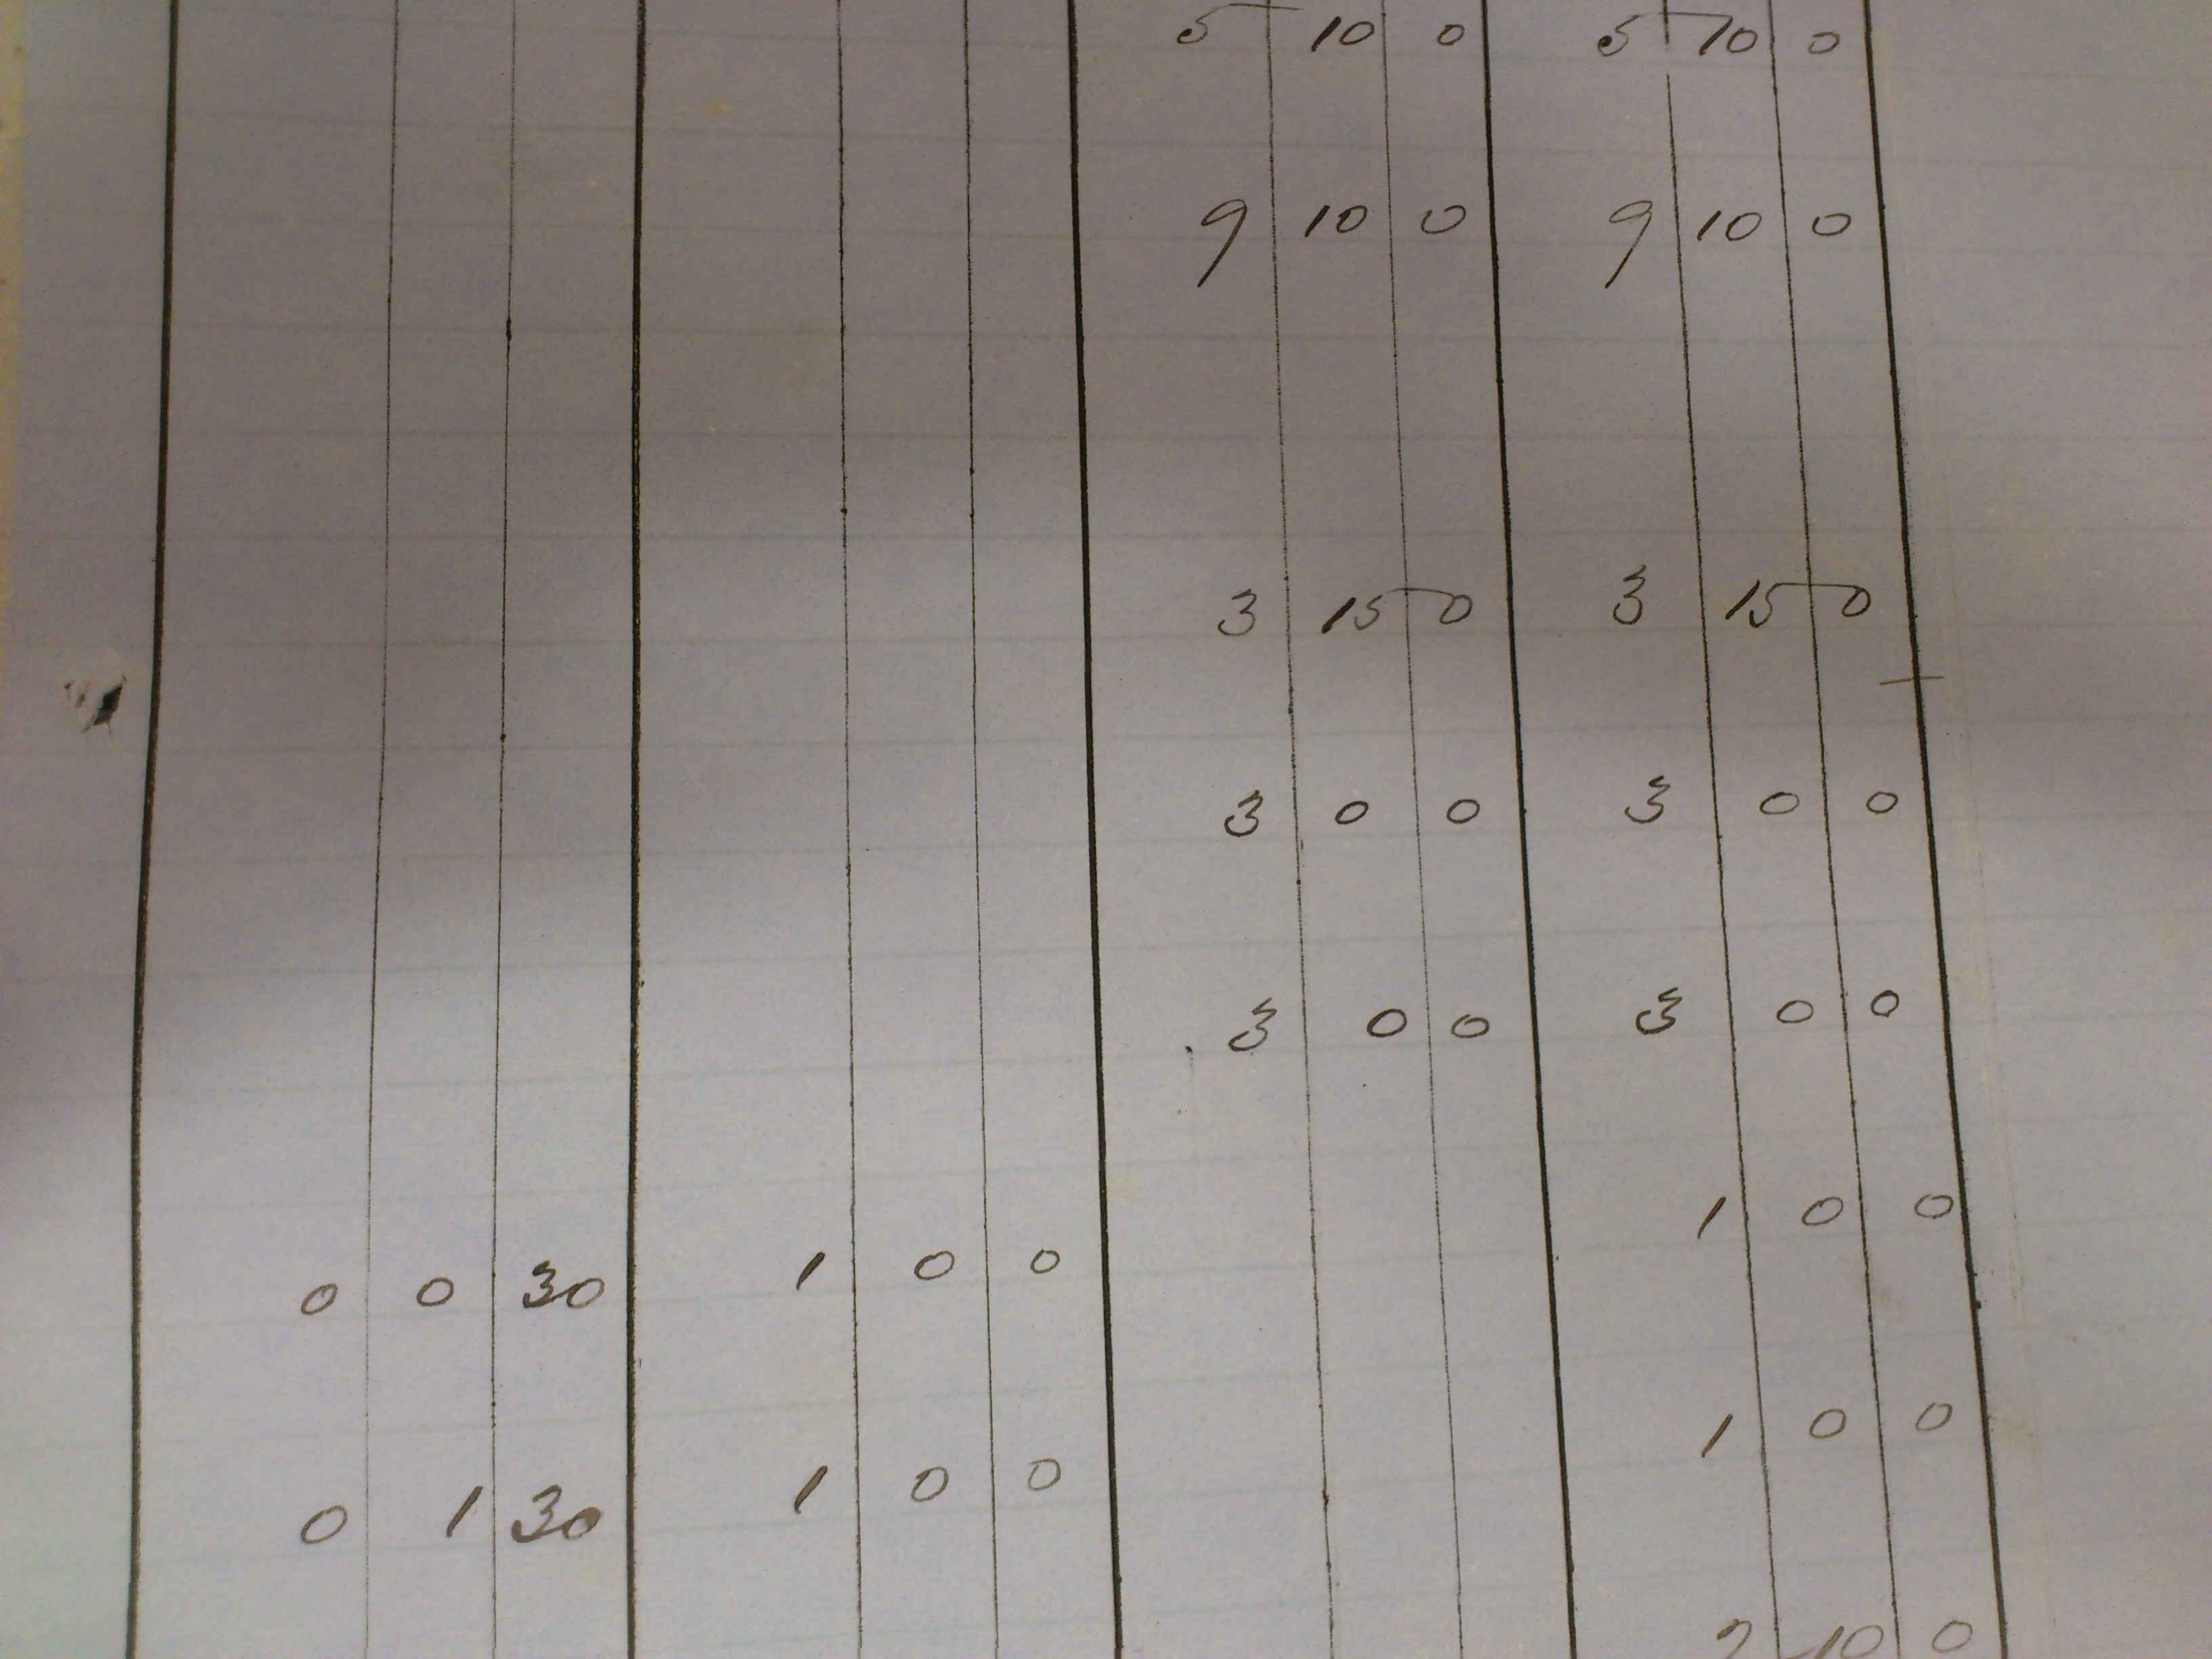 5 10 0 5 10 0
9 10 0 9 10 0
3 15 0 3 15 0
3 0 0 3 0 0
3 0 0 3 0 0
0 0 30 1 0 0 1 0 0
0 1 30 1 0 0 1 0 0
10 0